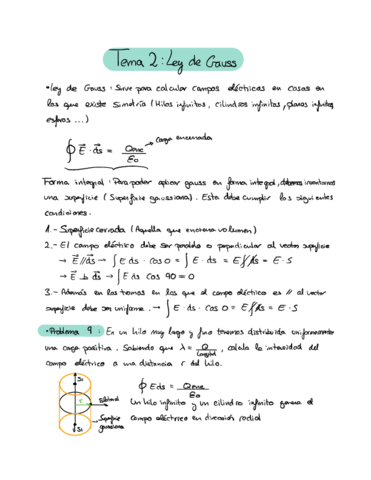 Tema 2: Ley de Gauss
• Ley de Gauss: Sirve para calcular campos eléctricos en casos en
los que existe simetría (Hilos infinitos, cilindros infinitos, planos infinitos
esferas ...)
∮ E⃗ · ds⃗ = Qenc / ε0 → carga encerrada
Forma integral: Para poder aplicar gauss en forma integral, debemos inventarnos
una superficie (Superficie gaussiana). Esta debe cumplir las siguientes
condiciones.
1.- Superficie cerrada (Aquella que encierra volumen)
2.- El campo eléctrico debe ser paralelo o perpendicular al vector superficie
→ E⃗ // ds⃗ → ∫ E · ds · cos 0 = ∫ E · ds = E ∫ ds = E · S
→ E⃗ ⊥ ds⃗ → ∫ E ds cos 90 = 0
3.- Además en las zonas en las que el campo eléctrico es // al vector
superficie debe ser uniforme. → ∫ E · ds · cos 0 = E ∫ ds = E · S
• Problema 9: En un hilo muy largo y fino tenemos distribuida uniformemente
una carga positiva. Sabiendo que λ = Q / Longitud, calcula la intensidad del
campo eléctrico a una distancia r del hilo.
S1
∮ E ds = Qenc / ε0
r
Slateral
Un hilo infinito y un cilindro infinito genera el
Superficie
gaussiana
campo eléctrico en dirección radial
S2